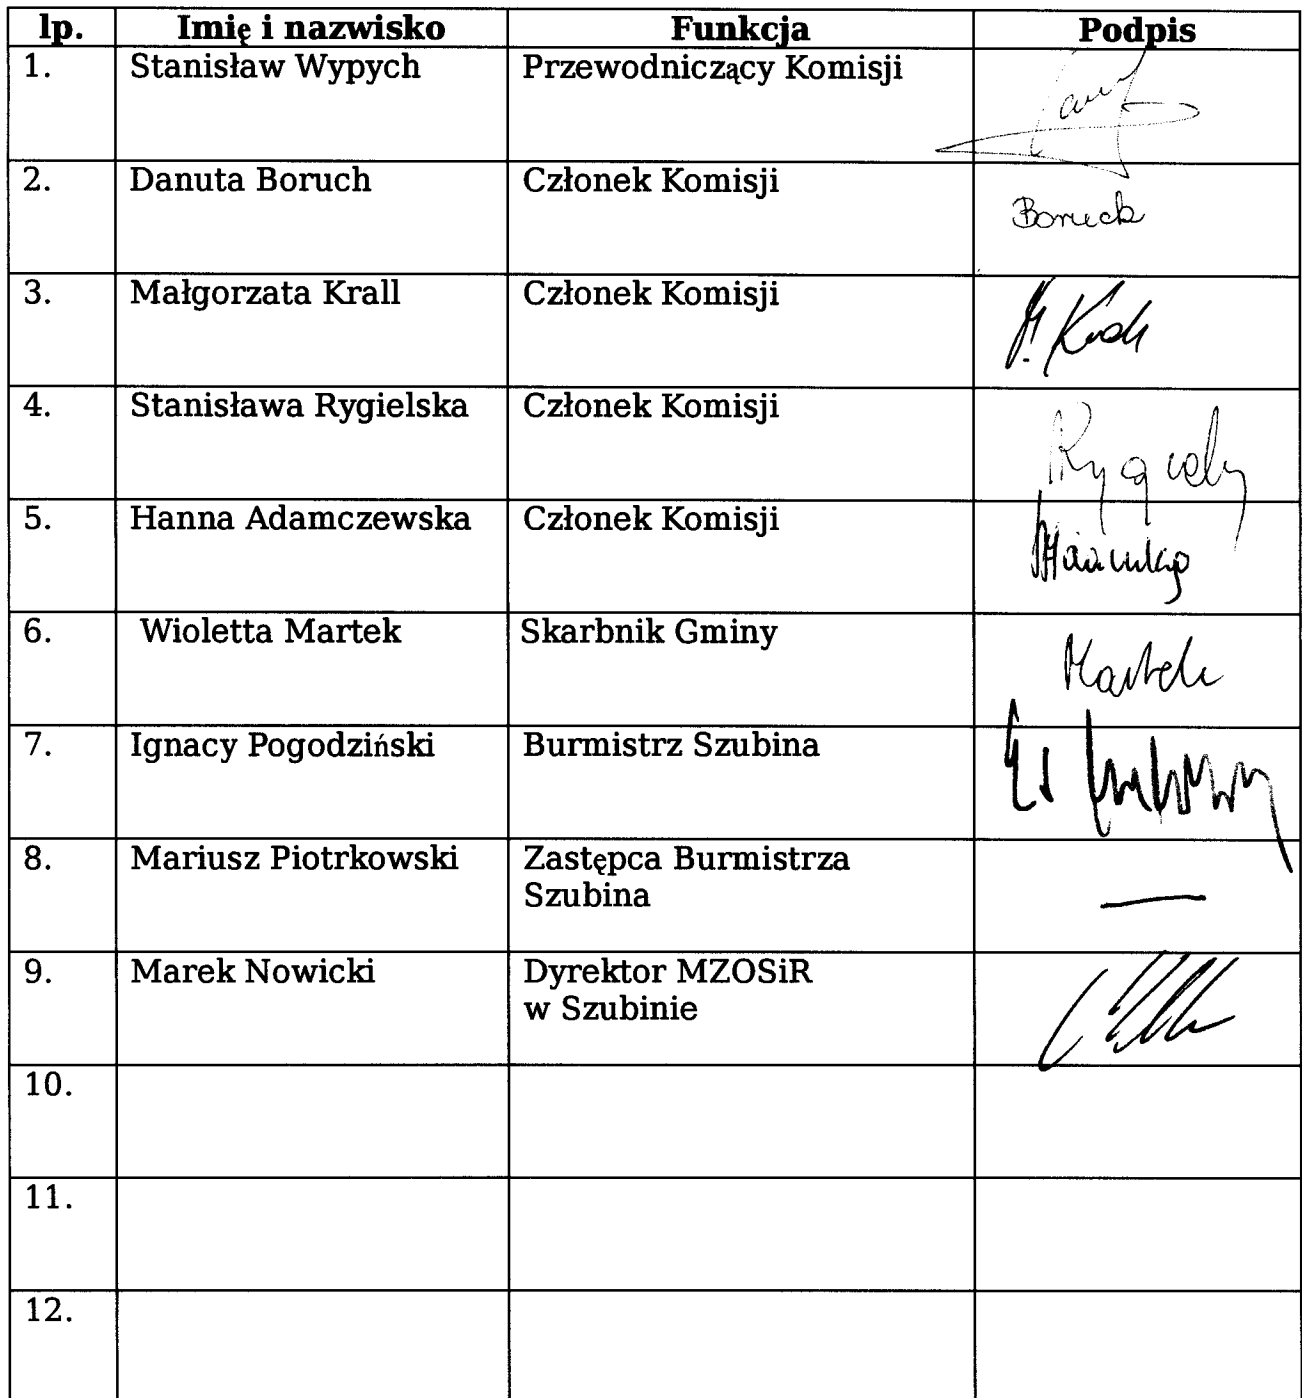 lp. Imię i nazwisko Funkcja Podpis
1. Stanisław Wypych Przewodniczący Komisji
2. Danuta Boruch Członek Komisji Boruch
3. Małgorzata Krall Członek Komisji M. Krall
4. Stanisława Rygielska Członek Komisji
5. Hanna Adamczewska Członek Komisji
6. Wioletta Martek Skarbnik Gminy Martek
7. Ignacy Pogodziński Burmistrz Szubina
8. Mariusz Piotrkowski Zastępca Burmistrza
Szubina —
9. Marek Nowicki Dyrektor MZOSiR
w Szubinie
10.
11.
12.